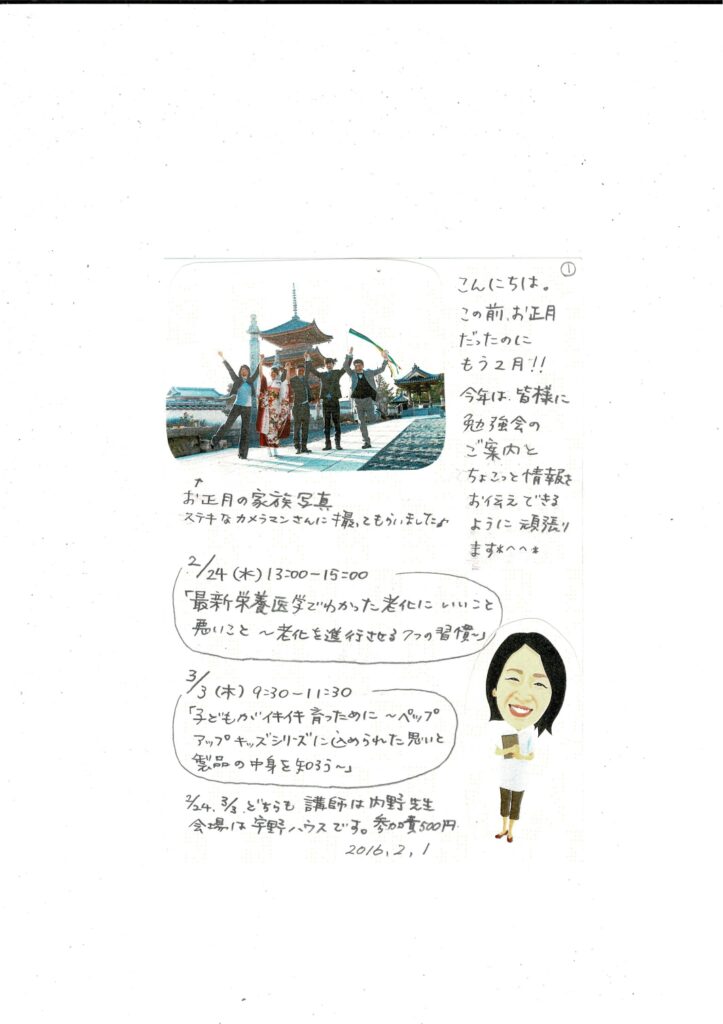 ①
こんにちは。
この前、お正月
だったのに
もう2月!!
今年は、皆様に
勉強会の
ご案内と
ちょこっと情報を
お伝えできる
ように頑張り
ます*^^*
↑
お正月の家族写真
ステキなカメラマンさんに撮ってもらいました♪
2/24(水)13:00-15:00
「最新栄養医学でわかった老化にいいこと
悪いこと ~老化を進行させる7つの習慣~」
3/3(木)9:30-11:30
「子どもがイキイキ育つために ~ペップ
アップキッズシリーズに込められた思いと
製品の中身を知ろう~」
2/24、3/3、どちらも 講師は内野先生
会場は宇野ハウスです。参加費500円
2016,2,1